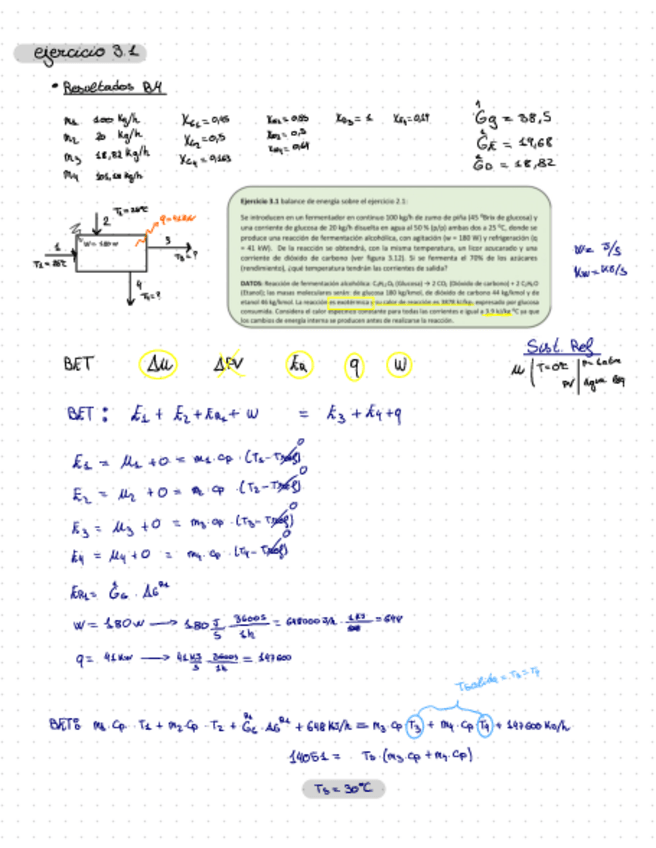 ejercicio 3.1
• Resultados BM
m1 100 kg/h XG1 = 0,45 XW1 = 0,55 XD3 = 1 XE4 = 0,19 ĜG = 38,5
m2 20 kg/h XG2 = 0,5 XW2 = 0,5 ĜE = 19,68
m3 18,82 kg/h XG4 = 0,163 XW4 = 0,64 ĜD = 18,82
m4 101,18 kg/h
T2=25ºC
2
q=41kW
W=180w
1
T1=25ºC
3
T3=?
4
T4=?
Ejercicio 3.1 balance de energía sobre el ejercicio 2.1:
Se introducen en un fermentador en continuo 100 kg/h de zumo de piña (45 ºBrix de glucosa) y
una corriente de glucosa de 20 kg/h disuelta en agua al 50 % (p/p) ambas dos a 25 ºC, donde se
produce una reacción de fermentación alcohólica, con agitación (w = 180 W) y refrigeración (q
= 41 kW). De la reacción se obtendrá, con la misma temperatura, un licor azucarado y una
corriente de dióxido de carbono (ver figura 3.12). Si se fermenta el 70% de los azúcares
(rendimiento), ¿qué temperatura tendrán las corrientes de salida?
DATOS: Reacción de fermentación alcohólica: C₆H₁₂O₆ (Glucosa) → 2 CO₂ (Dióxido de carbono) + 2 C₂H₆O
(Etanol); las masas moleculares serán: de glucosa 180 kg/kmol, de dióxido de carbono 44 kg/kmol y de
etanol 46 kg/kmol. La reacción es exotérmica y su calor de reacción es 3878 kJ/kg, expresado por glucosa
consumida. Considera el calor específico constante para todas las corrientes e igual a 3.9 kJ/kg ºC ya que
los cambios de energía interna se producen antes de realizarse la reacción.
W = J/s
KW = KJ/s
Sist. Ref
μ T=0ºC
PV
BET Δμ ΔPV ER q W
BET: E1 + E2 + ER1 + W = E3 + E4 + q
E1 = μ1 + 0 = m1 · cp · (T1 - Tref) 0
E2 = μ2 + 0 = m2 · cp · (T2 - Tref) 0
E3 = μ3 + 0 = m3 · cp · (T3 - Tref) 0
E4 = μ4 + 0 = m4 · cp · (T4 - Tref) 0
ER1 = ĜG · ΔGR1
W = 180w → 180 J/s · 3600s/1h = 648000 J/h · = 648
q = 41 kW → 41 KJ/s · 3600s/1h = 147600
Tsalida = T3 = T4
BET: m1 · Cp · T1 + m2 · Cp · T2 + ĜG · ΔGR1 + 648 KJ/h = m3 · Cp T3 + m4 · Cp T4 + 147600 KJ/h
14051 = Ts · (m3 cp + m4 · cp)
Ts = 30ºC